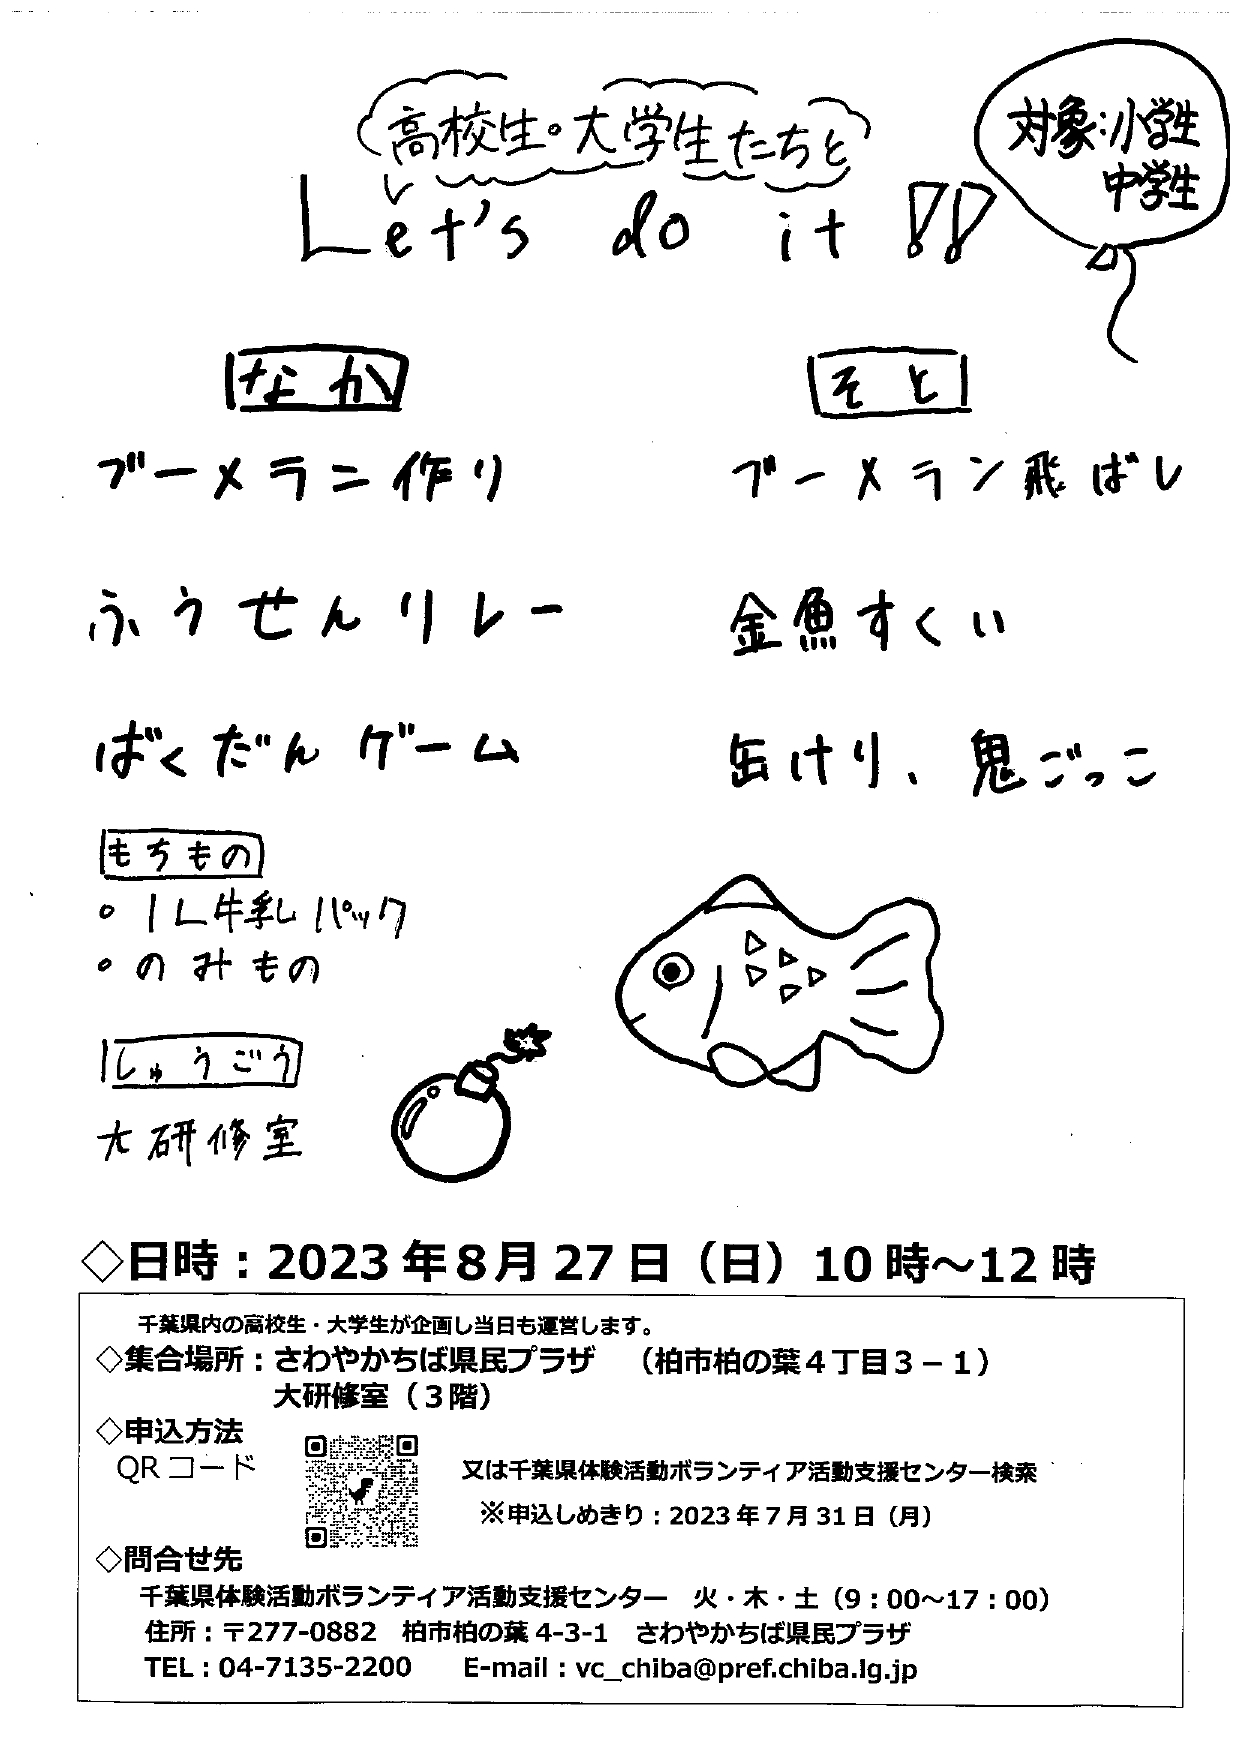 高校生。大学生たちと
Let's do it!!
対象:小学生
中学生
なか
ブーメラン作り
ふうせんリレー
ばくだんゲーム
そと
ブーメラン飛ばし
金魚すくい
缶けり、鬼ごっこ
もちもの
。1L牛乳パック
。のみもの
しゅうごう
大研修室
◇日時:2023年8月27日(日)10時~12時
千葉県内の高校生・大学生が企画し当日も運営します。
◇集合場所:さわやかちば県民プラザ (柏市柏の葉4丁目3-1)
大研修室(3階)
◇申込方法
QRコード
又は千葉県体験活動ボランティア活動支援センター検索
※申込しめきり:2023年7月31日(月)
◇問合せ先
千葉県体験活動ボランティア活動支援センター 火・木・土(9:00~17:00)
住所:〒277-0882 柏市柏の葉4-3-1 さわやかちば県民プラザ
TEL:04-7135-2200 E-mail:vc_chiba@pref.chiba.lg.jp